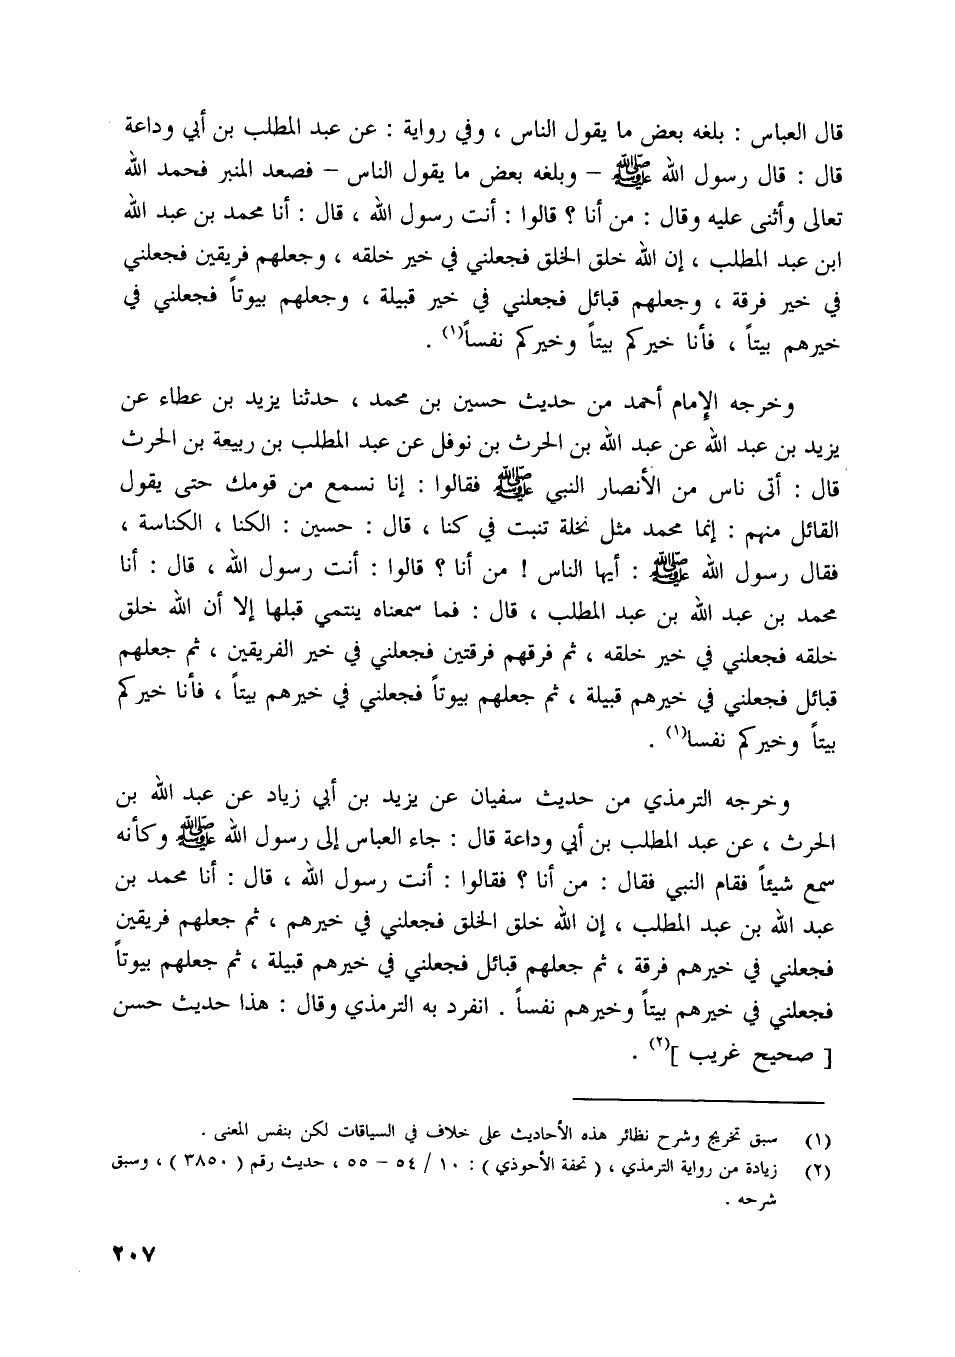 قال العباس : بلغه بعض ما يقول الناس ، وفي رواية : عن عبد المطلب بن أبي وداعة
قال : قال رسول الله ﷺ – وبلغه بعض ما يقول الناس – فصعد المنبر فحمد الله
تعالى وأثنى عليه وقال : من أنا ؟ قالوا : أنت رسول الله ، قال : أنا محمد بن عبد الله
ابن عبد المطلب ، إن الله خلق الخلق فجعلني في خير خلقه ، وجعلهم فريقين فجعلني
في خير فرقة ، وجعلهم قبائل فجعلني في خير قبيلة ، وجعلهم بيوتاً فجعلني في
خيرهم بيتاً ، فأنا خيركم بيتاً وخيركم نفساً(١) .
وخرجه الإمام أحمد من حديث حسين بن محمد ، حدثنا يزيد بن عطاء عن
يزيد بن عبد الله عن عبد الله بن الحرث بن نوفل عن عبد المطلب بن ربيعة بن الحرث
قال : أتى ناس من الأنصار النبي ﷺ فقالوا : إنا نسمع من قومك حتى يقول
القائل منهم : إنما محمد مثل نخلة تنبت في كنا ، قال : حسين : الكنا ، الكناسة ،
فقال رسول الله ﷺ : أيها الناس ! من أنا ؟ قالوا : أنت رسول الله ، قال : أنا
محمد بن عبد الله بن عبد المطلب ، قال : فما سمعناه ينتمي قبلها إلا أن الله خلق
خلقه فجعلني في خير خلقه ، ثم فرقهم فرقتين فجعلني في خير الفريقين ، ثم جعلهم
قبائل فجعلني في خيرهم قبيلة ، ثم جعلهم بيوتاً فجعلني في خيرهم بيتاً ، فأنا خيركم
بيتاً وخيركم نفسا(١) .
وخرجه الترمذي من حديث سفيان عن يزيد بن أبي زياد عن عبد الله بن
الحرث ، عن عبد المطلب بن أبي وداعة قال : جاء العباس إلى رسول الله ﷺ وكأنه
سمع شيئاً فقام النبي فقال : من أنا ؟ فقالوا : أنت رسول الله ، قال : أنا محمد بن
عبد الله بن عبد المطلب ، إن الله خلق الخلق فجعلني في خيرهم ، ثم جعلهم فريقين
فجعلني في خيرهم فرقة ، ثم جعلهم قبائل فجعلني في خيرهم قبيلة ، ثم جعلهم بيوتاً
فجعلني في خيرهم بيتاً وخيرهم نفساً . انفرد به الترمذي وقال : هذا حديث حسن
[ صحيح غريب ](٢) .
(١) سبق تخريج وشرح نظائر هذه الأحاديث على خلاف في السياقات لكن بنفس المعنى .
(٢) زيادة من رواية الترمذي ، ( تحفة الأحوذي ) : ١٠ / ٥٤ – ٥٥ ، حديث رقم ( ٣٨٥٠ ) ، وسبق
شرحه .
٢٠٧